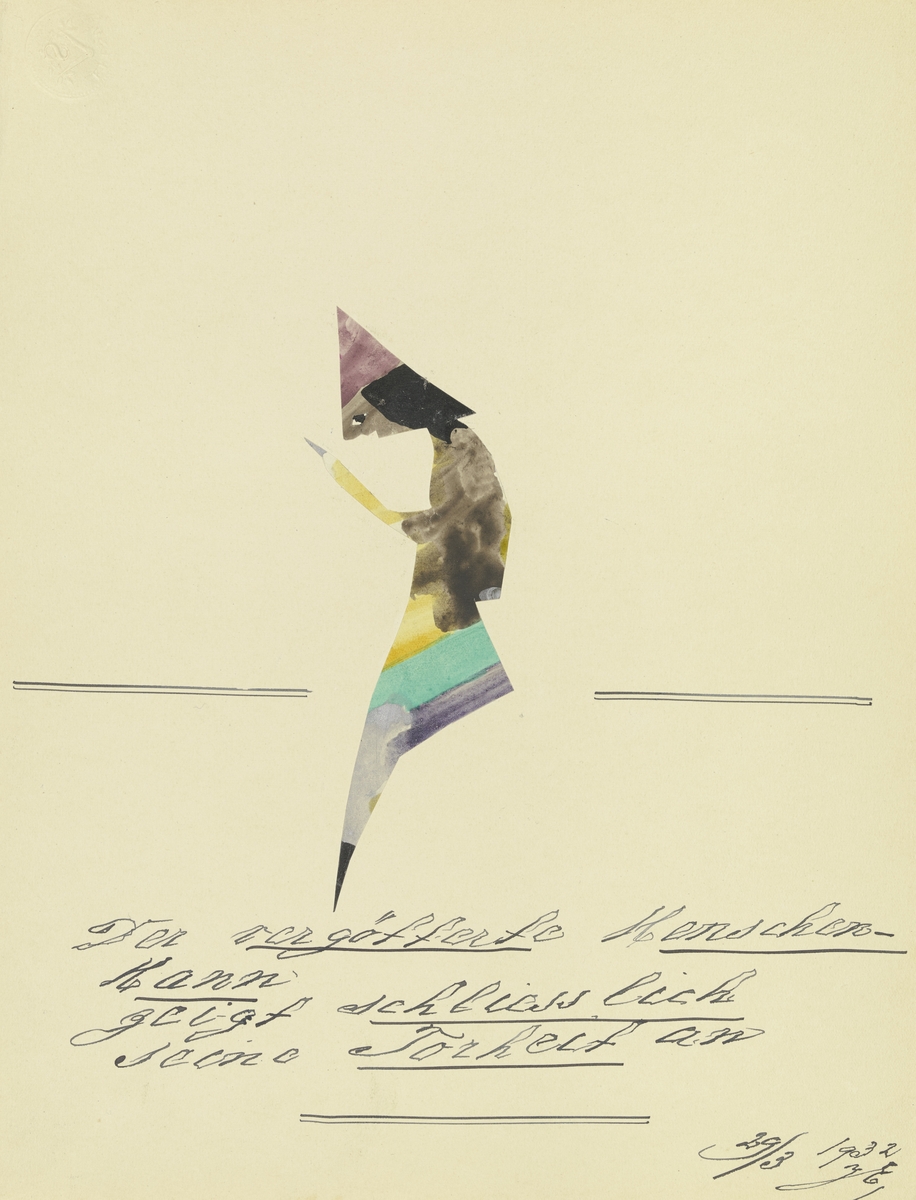 Der vergötterte Menschen-
Kann
geigt schliesslich
seine Torheit an
29/3 1932